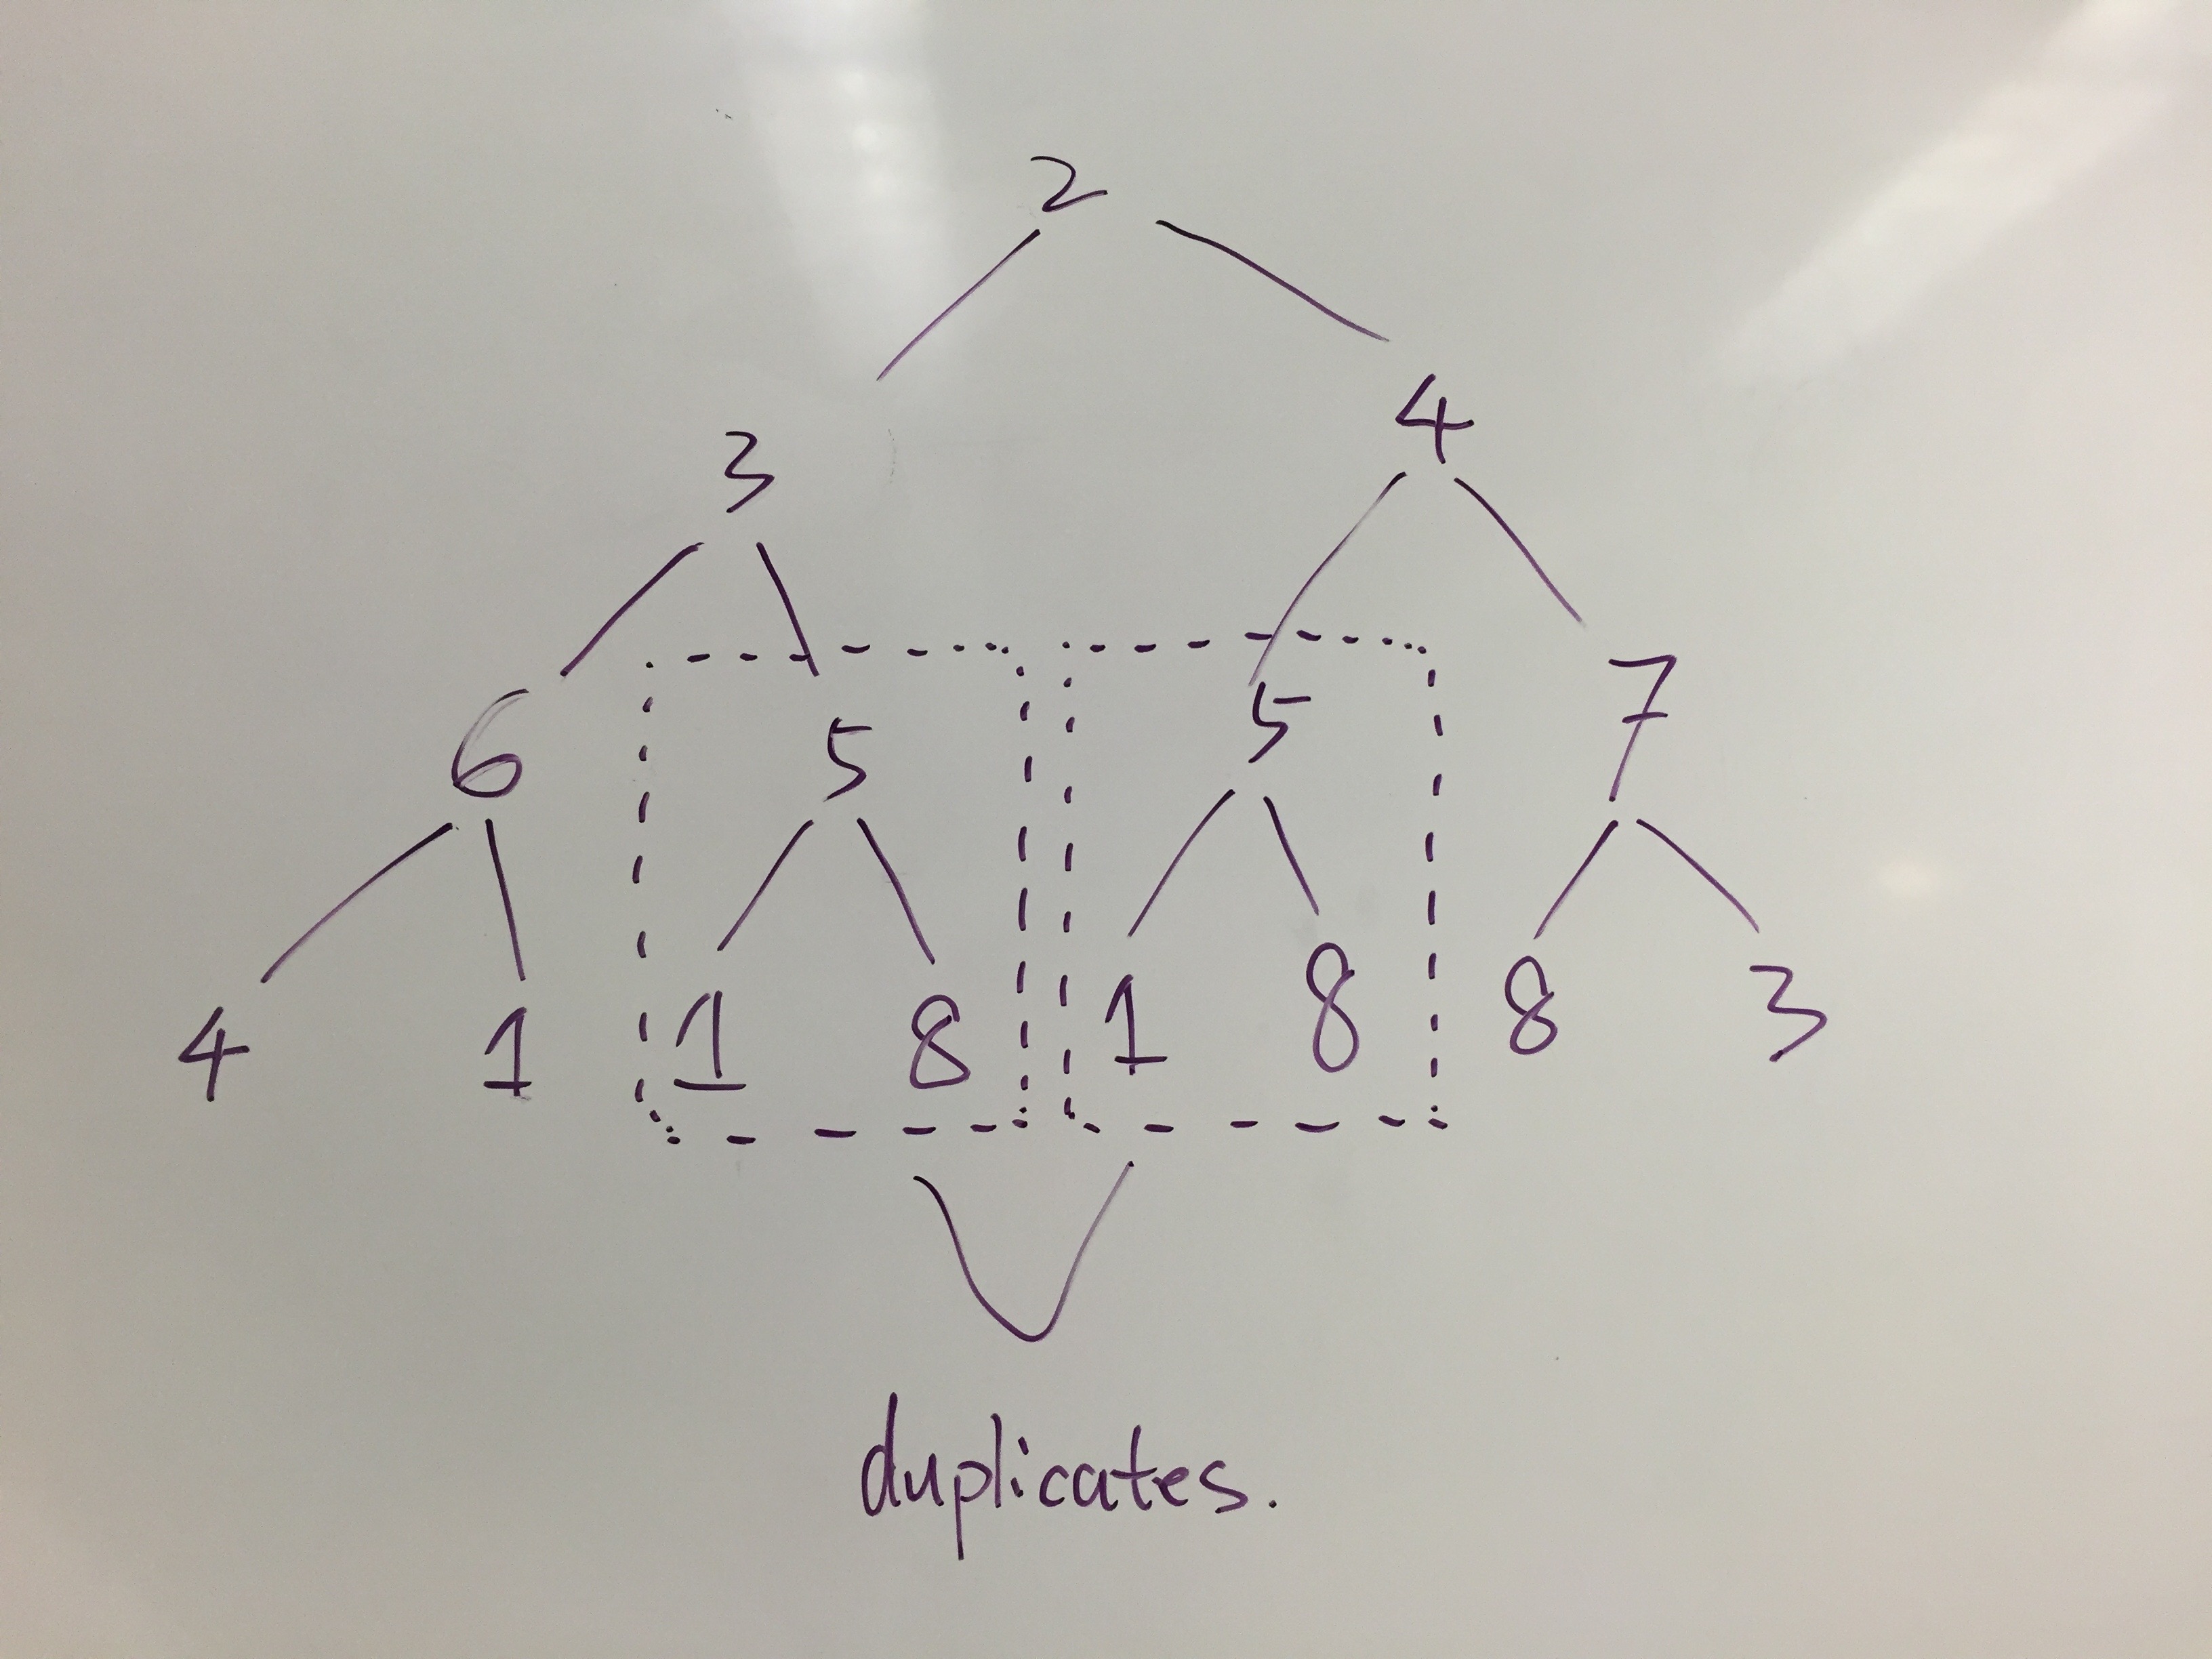 2
3 4
6 5 5 7
4 1 1 8 1 8 8 3
duplicates.